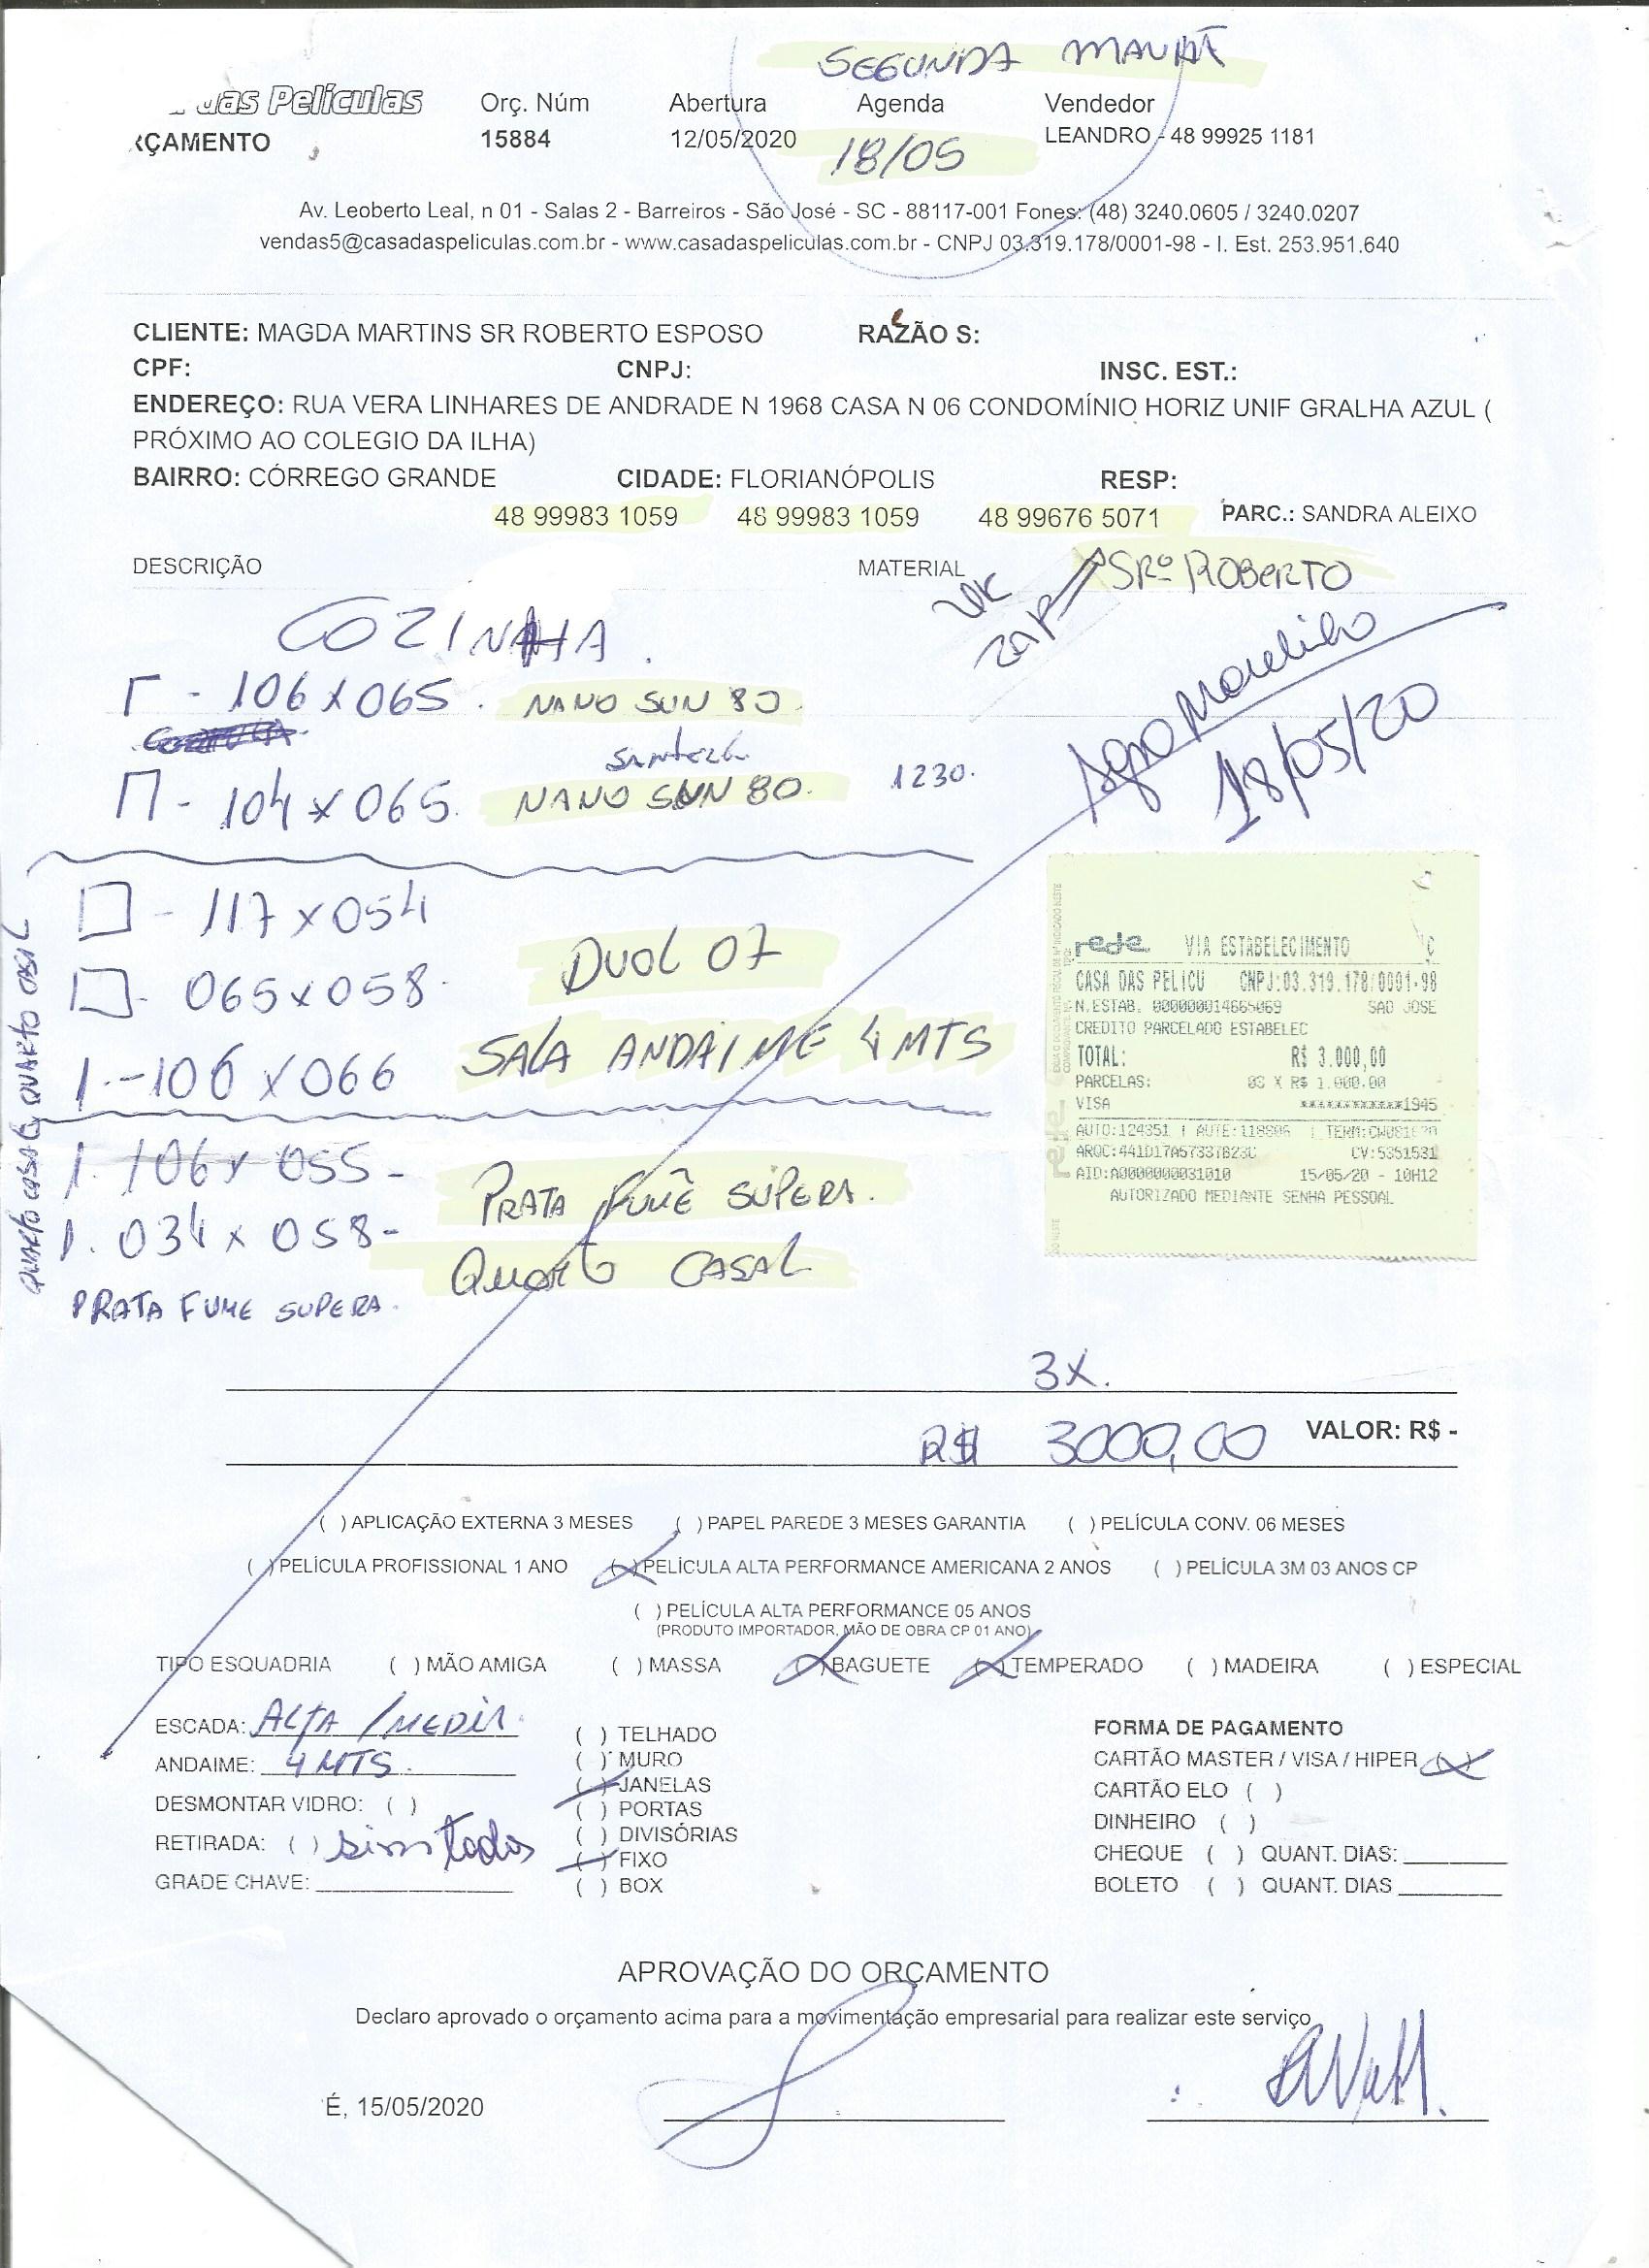 SEGUNDA MANHÃ
das Películas
Orç. Núm Abertura Agenda Vendedor
RÇAMENTO 15884 12/05/2020 18/05 LEANDRO - 48 99925 1181
Av. Leoberto Leal, n 01 - Salas 2 - Barreiros - São José - SC - 88117-001 Fones: (48) 3240.0605 / 3240.0207
vendas5@casadaspeliculas.com.br - www.casadaspeliculas.com.br - CNPJ 03.319.178/0001-98 - I. Est. 253.951.640
CLIENTE: MAGDA MARTINS SR ROBERTO ESPOSO RAZÃO S:
CPF: CNPJ: INSC. EST.:
ENDEREÇO: RUA VERA LINHARES DE ANDRADE N 1968 CASA N 06 CONDOMÍNIO HORIZ UNIF GRALHA AZUL (
PRÓXIMO AO COLEGIO DA ILHA)
BAIRRO: CÓRREGO GRANDE CIDADE: FLORIANÓPOLIS RESP:
48 99983 1059 48 99983 1059 48 99676 5071 PARC.: SANDRA ALEIXO
DESCRIÇÃO MATERIAL
ZAP SRº ROBERTO
COZINHA.
106 x 065. NANO SUN 80
104 x 065. NANO SUN 80. 1230.
18/05/20
117 x 054
DUOL 07
065 x 058
SALA ANDAIME 4 MTS
1.-106 x 066
1. 106 x 055 -
PRATA FUMÊ SUPERA.
1. 034 x 058 -
QUARTO CASAL
PRATA FUME SUPERA.
rede VIA ESTABELECIMENTO
CASA DAS PELICU CNPJ:03.319.178/0001-98
N.ESTAB. 000000014665069 SAO JOSE
CREDITO PARCELADO ESTABELEC
TOTAL: R$ 3.000,00
PARCELAS: 03 X R$ 1.000.00
VISA ************1945
AUTO:124351
CV:5351531
AID:A0000000031010 15/05/20 - 10H12
AUTORIZADO MEDIANTE SENHA PESSOAL
3X.
R$ 3000,00 VALOR: R$ -
( ) APLICAÇÃO EXTERNA 3 MESES ( ) PAPEL PAREDE 3 MESES GARANTIA ( ) PELÍCULA CONV. 06 MESES
( ) PELÍCULA PROFISSIONAL 1 ANO (X) PELÍCULA ALTA PERFORMANCE AMERICANA 2 ANOS ( ) PELÍCULA 3M 03 ANOS CP
( ) PELÍCULA ALTA PERFORMANCE 05 ANOS
(PRODUTO IMPORTADOR, MÃO DE OBRA CP 01 ANO)
TIPO ESQUADRIA ( ) MÃO AMIGA ( ) MASSA (X) BAGUETE (X) TEMPERADO ( ) MADEIRA ( ) ESPECIAL
ESCADA: ALTA /MEDIA.
ANDAIME: 4 MTS.
DESMONTAR VIDRO: ( )
RETIRADA: ( ) sim todos
GRADE CHAVE:
( ) TELHADO
( ) MURO
(X) JANELAS
( ) PORTAS
( ) DIVISÓRIAS
(X) FIXO
( ) BOX
FORMA DE PAGAMENTO
CARTÃO MASTER / VISA / HIPER (X)
CARTÃO ELO ( )
DINHEIRO ( )
CHEQUE ( ) QUANT. DIAS:
BOLETO ( ) QUANT. DIAS
APROVAÇÃO DO ORÇAMENTO
Declaro aprovado o orçamento acima para a movimentação empresarial para realizar este serviço
É, 15/05/2020